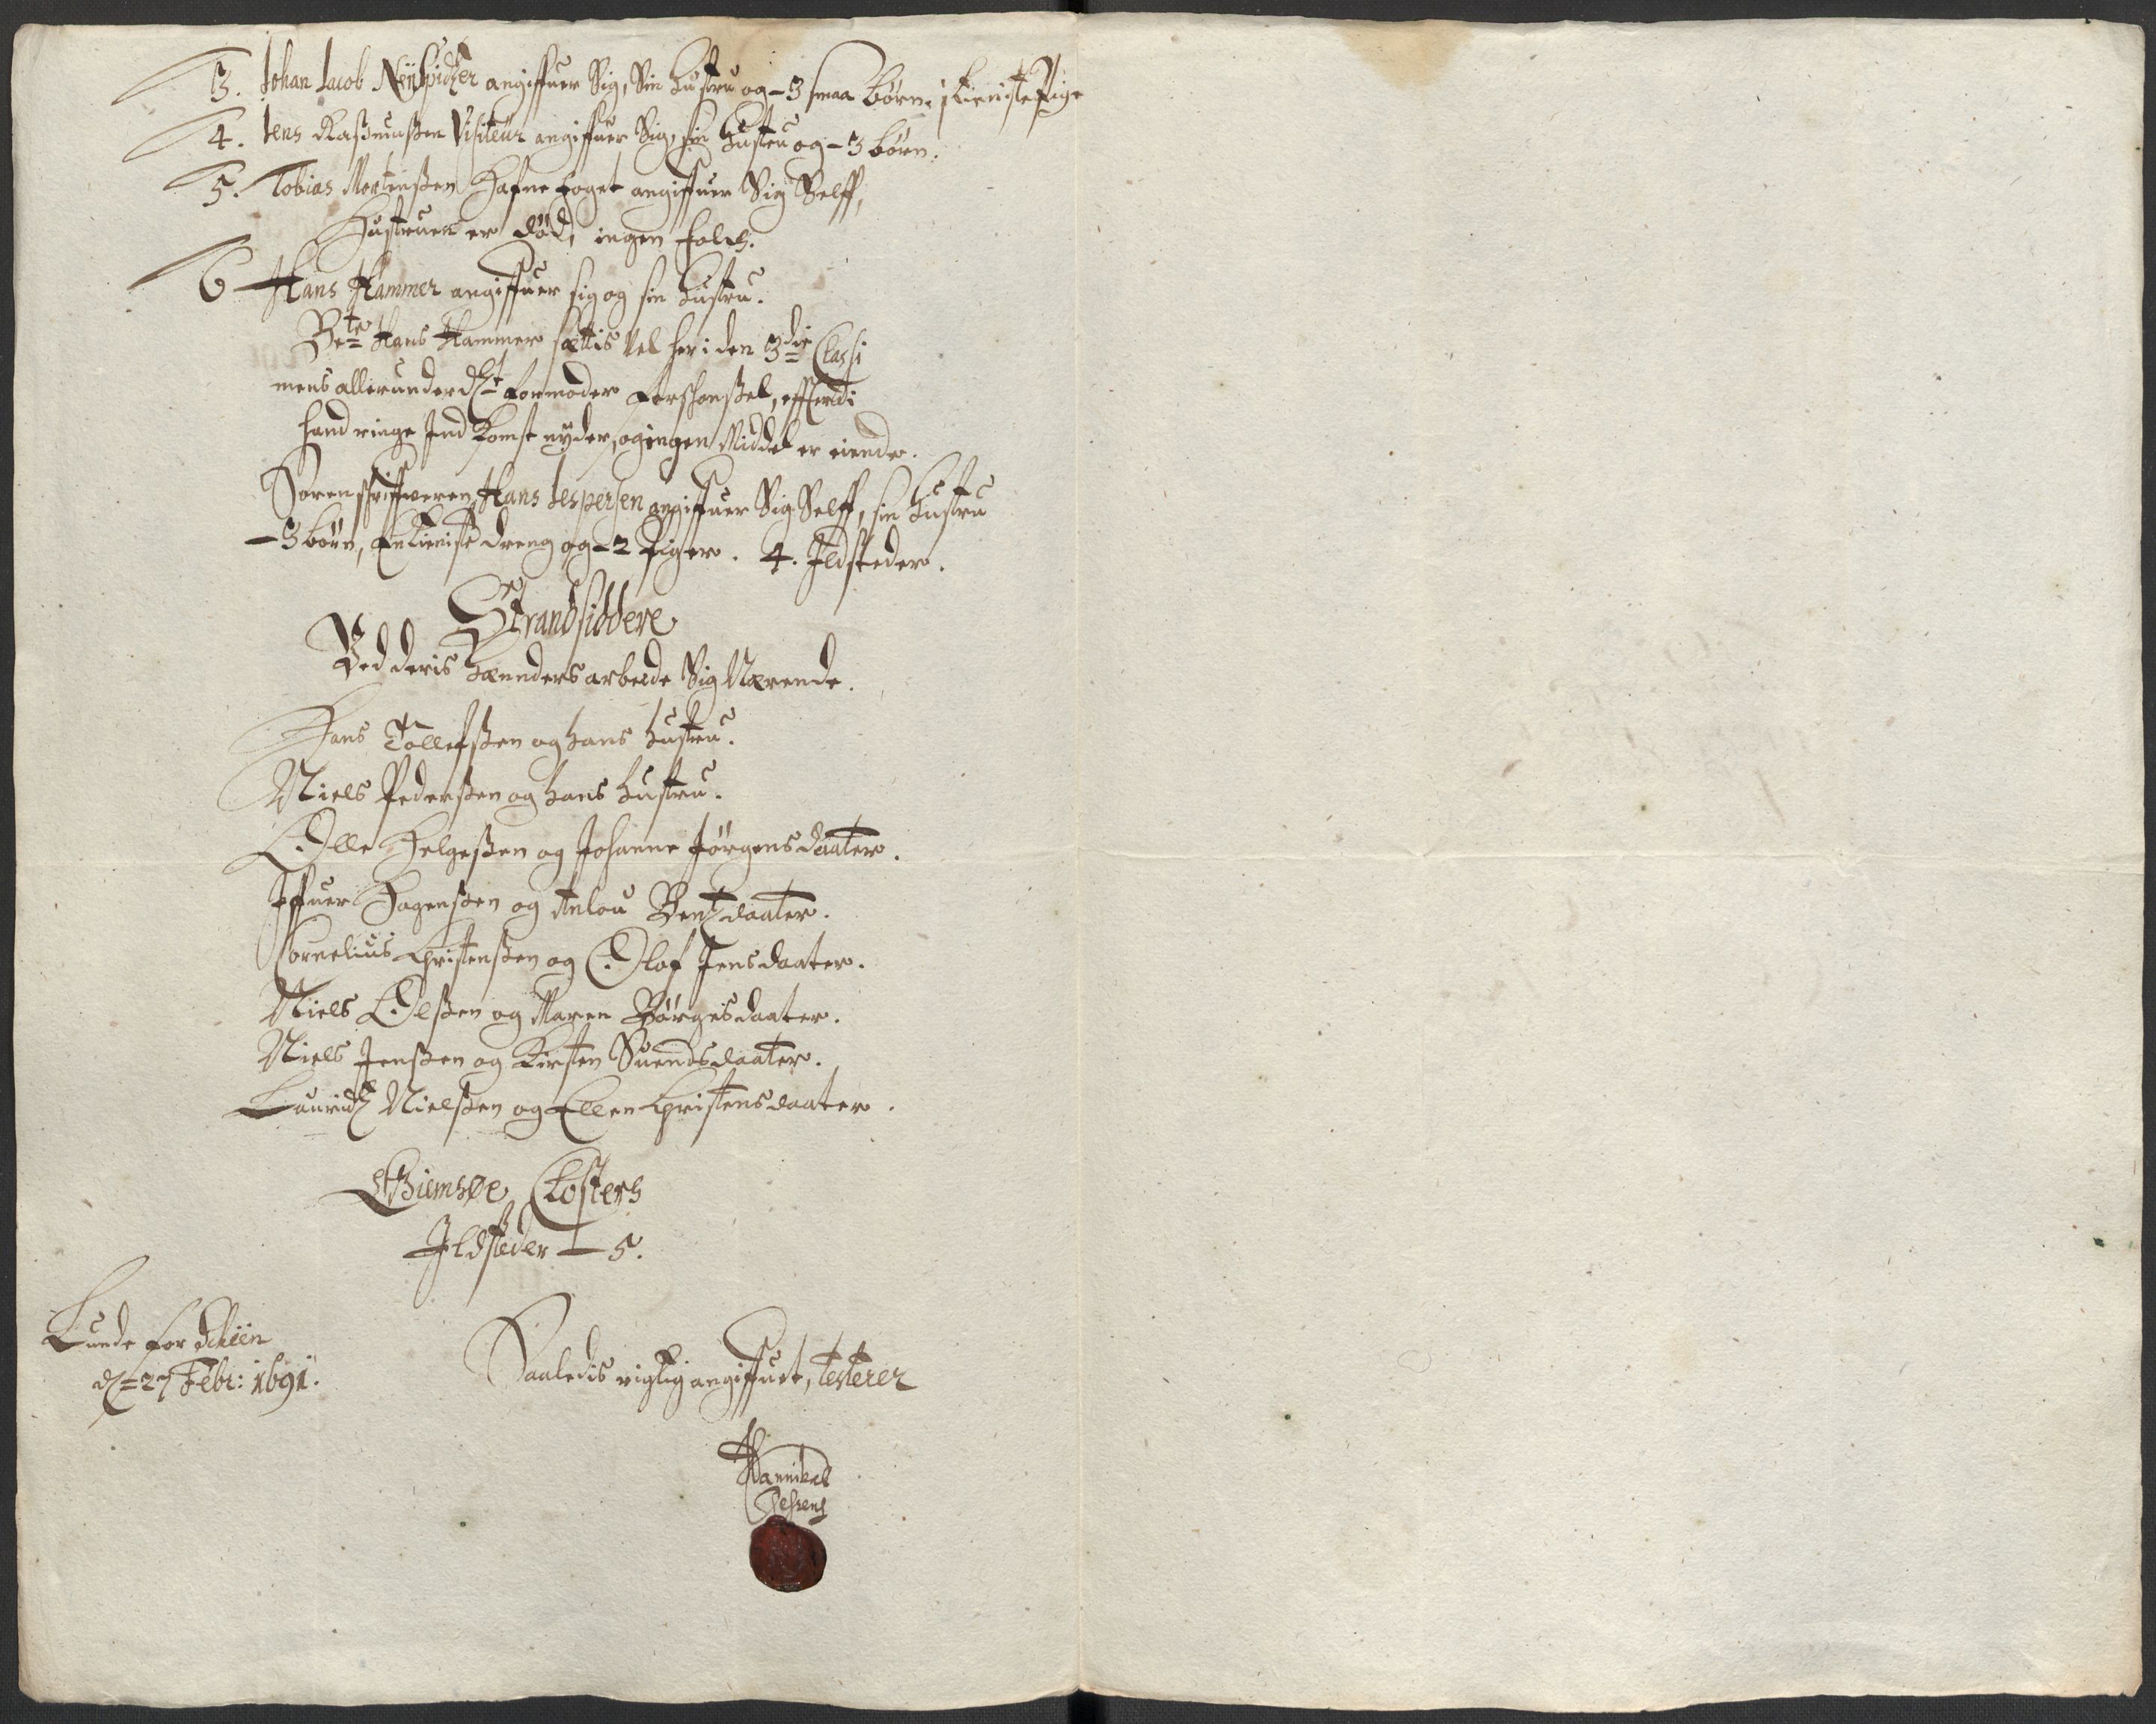 3. Johan Jacob Neÿspidzer angiffuer Sig, Sin Hustru og - 3 smaa Børn. 1 tieniste Pige
4. Jens Rasmusßen Visiteur angiffuer Sig, sin Hustru og - 3 børn.
5. Tobias Mortensßen Hafne foget angiffuer Sig Selff,
Hustruen er død, ingen folch.
6 Hans Hammer angiffuer sig og sin Hustru.
Bete Hans Hammer settis vel her i den 3die Classi
mens allerunderdt formoder forschonßel, efftersom
hand ringe Ind Komst nyder, og ingen Middel er eiende.
Sorenschriffveren Hans Jespersen angiffuer Sig Selff, sin Hustru
- 3 børn, en tieniste dreng og - 2 piger. 4. Ildsteder.
Strandsiddere
Ved deris Hænders arbeide Sig Nærende.
Hans Tollefsßen og hans Hustru.
Niels Pedersßen og hans Hustru.
Olle Helgesßen og Johanne Jørgensdaater.
Iffuer Hagensßen og Anlou Bentzdaater.
Cornelius Christensßen og Olaf Jensdaater.
Niels Olsßen og Maren Børgesdaater.
Niels Jensßen og Kirsten Suendsdaater.
Lauridz Nielsßen og Ellen Christensdaater.
Giemsøe Closters
Ildsteder - 5.
Lunde for Schien
dn 27 Febr: 1691.
Saaledis rigtig angiffuet, testerer